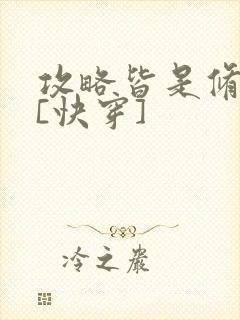 攻略皆是修
[快穿]
冷之严